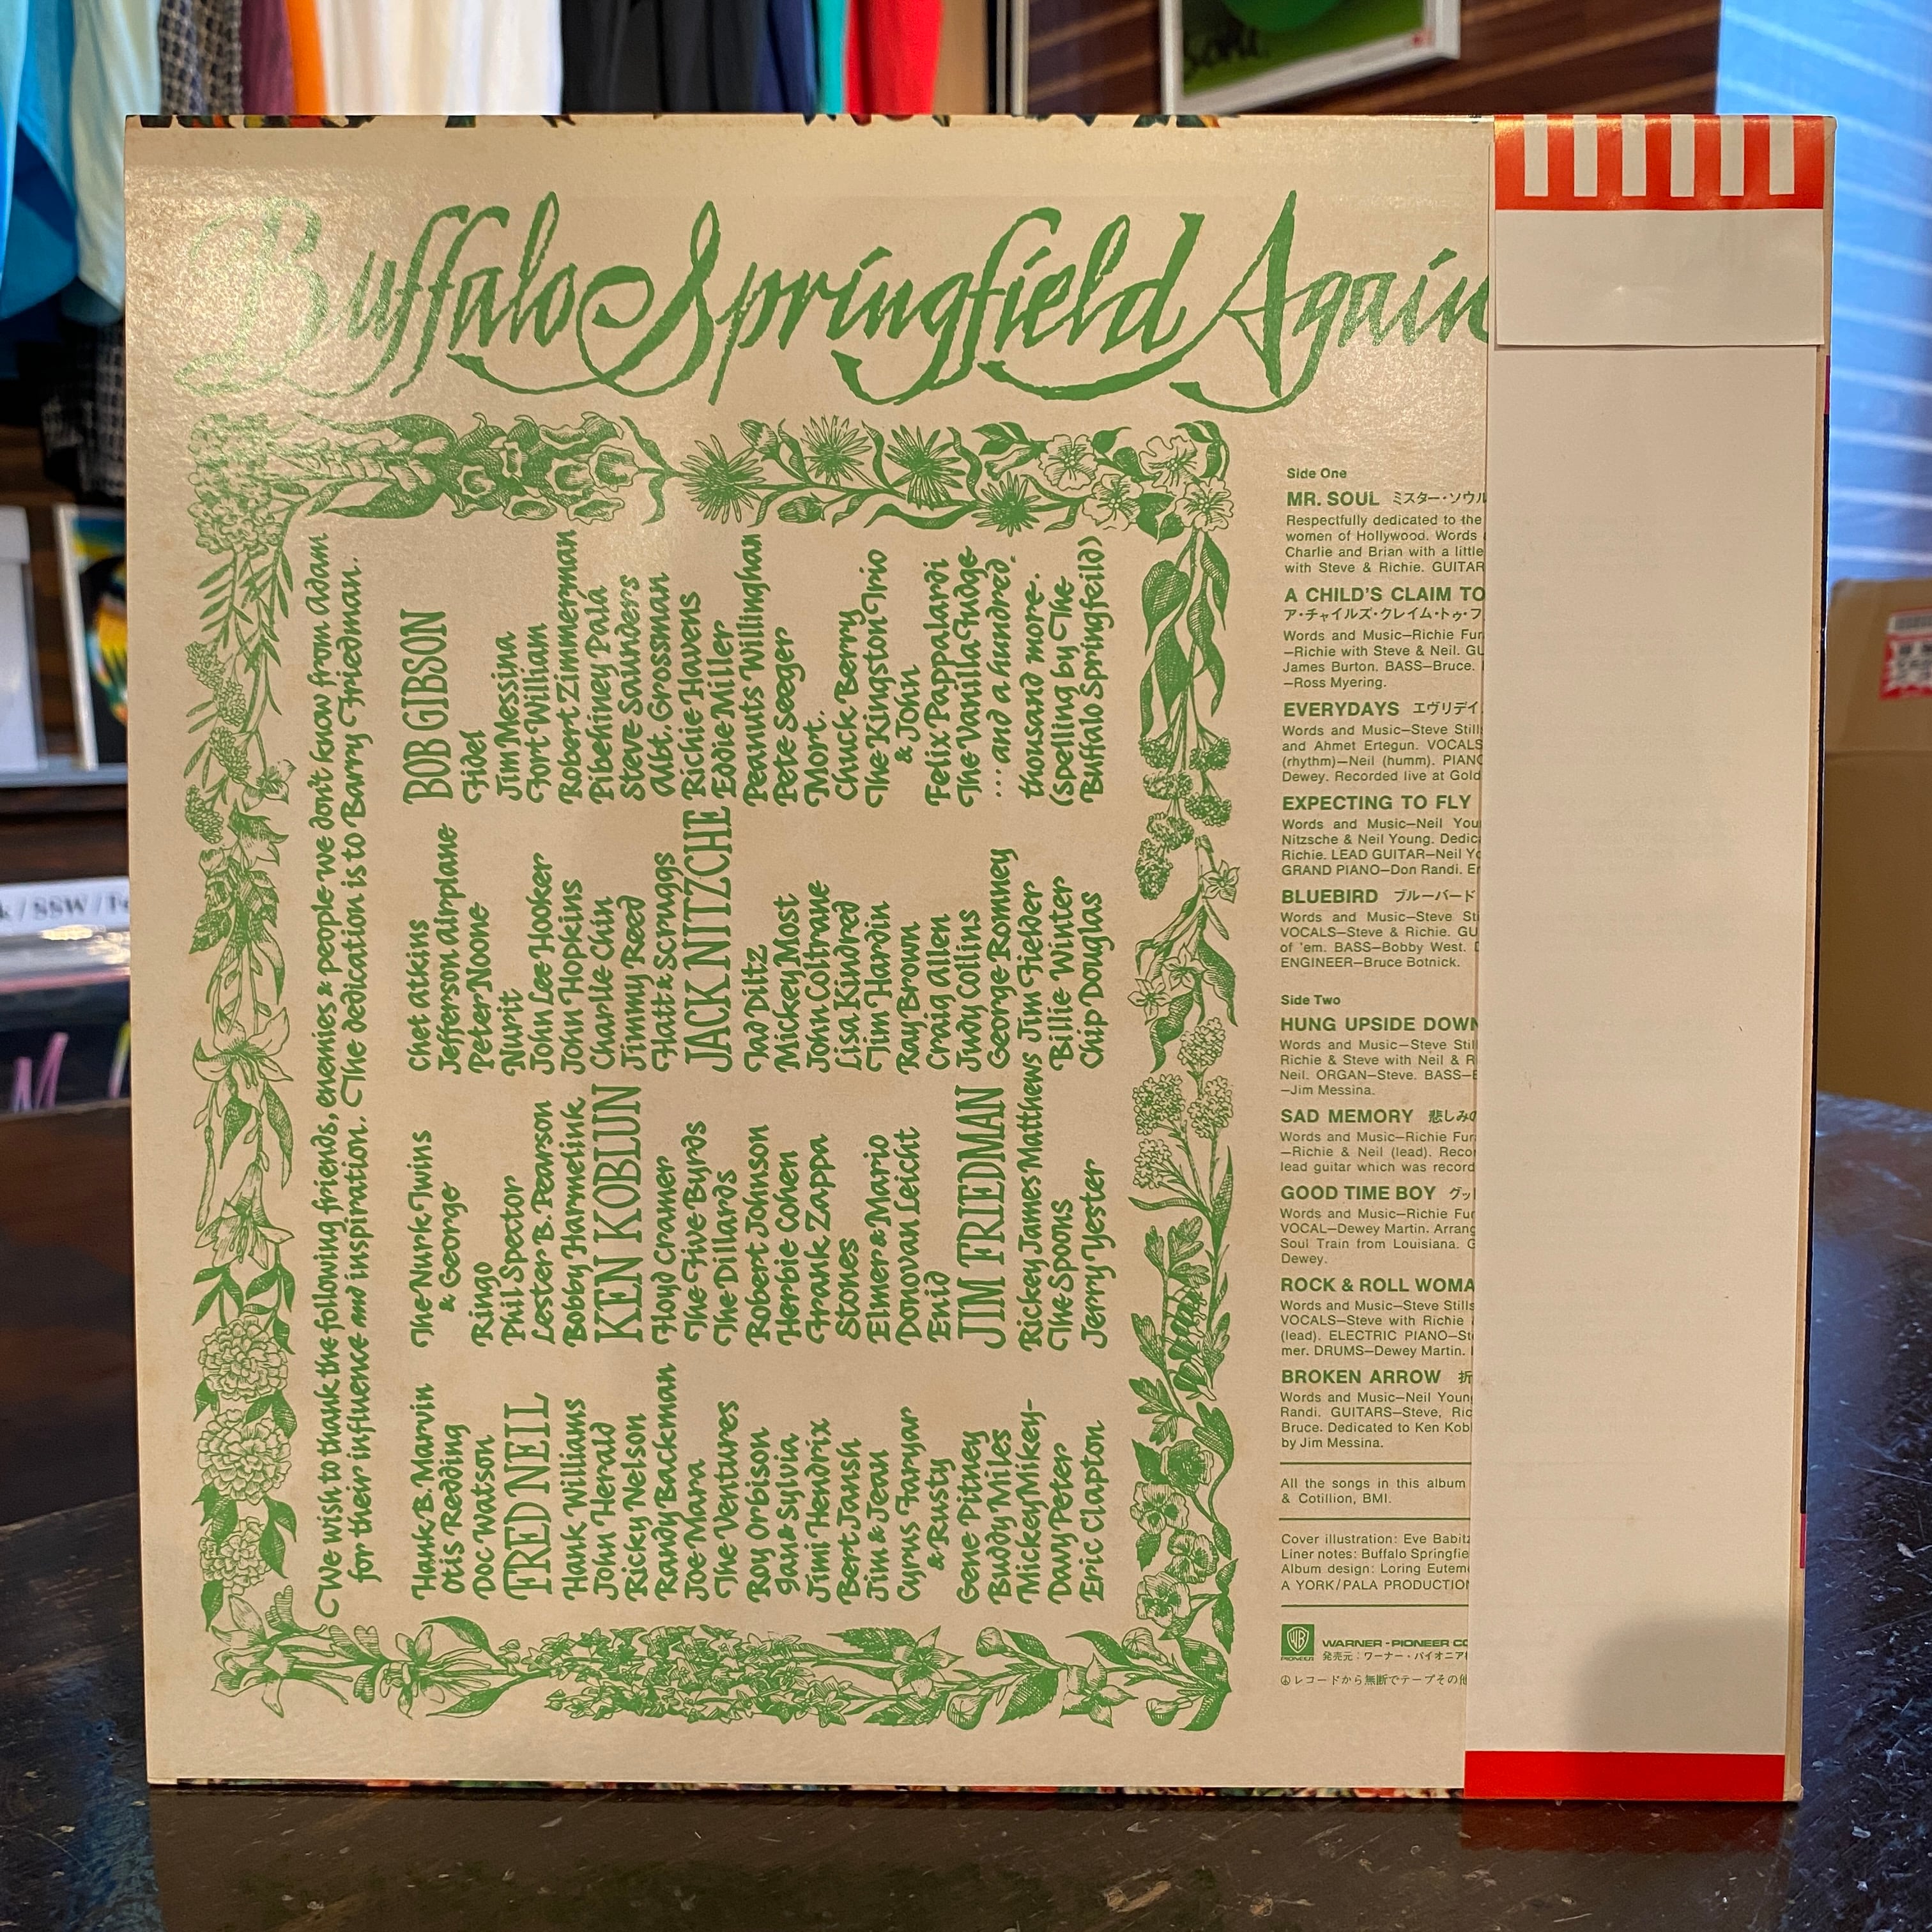 Buffalo Springfield Again
We wish to thank the following friends, enemies & people we don't know from Adam
for their influence and inspiration. The dedication is to Barry Friedman.
Hank B. Marvin
Otis Redding
Doc Watson
FRED NEIL
Hank Williams
John Herald
Ricky Nelson
Randy Backman
Joe Mara
The Ventures
Roy Orbison
Jan & Sylvia
Jimi Hendrix
Bert Jansh
Jim & Jean
Cyrus Faryar
& Rusty
Gene Pitney
Buddy Miles
Mickey Mikey-
Davy Peter
Eric Clapton
The Nurk Twins
& George
Ringo
Phil Spector
Lester B. Pearson
Bobby Harmelink
KEN KOBLUN
Floyd Cramer
The Five Byrds
The Dillards
Robert Johnson
Herbie Cohen
Frank Zappa
Stones
Elmer & Mario
Donovan Leicht
Enid
JIM FRIEDMAN
Rickey James Matthews
The Spoons
Jerry Yester
Chet Atkins
Jefferson Airplane
Peter Noone
Nurit
John Lee Hooker
John Hopkins
Charlie Chin
Jimmy Reed
Flatt & Scruggs
JACK NITZCHE
Tad Diltz
Mickey Most
John Coltrane
Lisa Kindred
Tim Hardin
Ray Brown
Craig Allen
Judy Collins
George Romney
Jim Fielder
Billie Winter
Chip Douglas
BOB GIBSON
Fidel
Jim Messina
Fort William
Robert Zimmerman
Pibehiney Palá
Steve Saunders
Albt. Grossman
Richie Havens
Eddie Miller
Peanuts Willinghan
Pete Seeger
Mort.
Chuck Berry
The Kingston Trio
& John
Felix Pappalardi
The Vanilla Fudge
...and a hundred
thousand more.
(spelling by The
Buffalo Springfeild)
Side One
MR. SOUL ミスター・ソウル
Respectfully dedicated to the
women of Hollywood. Words
Charlie and Brian with a little
with Steve & Richie. GUITAR
A CHILD'S CLAIM TO
ア・チャイルズ・クレイム・トゥ・フ
Words and Music—Richie Fur
—Richie with Steve & Neil. GU
James Burton. BASS—Bruce.
—Ross Myering.
EVERYDAYS エヴリデイ
Words and Music—Steve Still
and Ahmet Ertegun. VOCALS
(rhythm)—Neil (humm). PIANO
Dewey. Recorded live at Gold
EXPECTING TO FLY
Words and Music—Neil You
Nitzsche & Neil Young. Dedic
Richie. LEAD GUITAR—Neil Yo
GRAND PIANO—Don Randi. E
BLUEBIRD ブルーバード
Words and Music—Steve St
VOCALS—Steve & Richie. GU
of 'em. BASS—Bobby West.
ENGINEER—Bruce Botnick.
Side Two
HUNG UPSIDE DOWN
Words and Music—Steve Still
Richie & Steve with Neil & R
Neil. ORGAN—Steve. BASS—B
—Jim Messina.
SAD MEMORY 悲しみの
Words and Music—Richie Fur
—Richie & Neil (lead). Reco
lead guitar which was record
GOOD TIME BOY グッ
Words and Music—Richie Fur
VOCAL—Dewey Martin. Arrang
Soul Train from Louisiana. G
Dewey.
ROCK & ROLL WOMA
Words and Music—Steve Stills
VOCALS—Steve with Richie
(lead). ELECTRIC PIANO—St
mer. DRUMS—Dewey Martin.
BROKEN ARROW 折
Words and Music—Neil Young
Randi. GUITARS—Steve, Ric
Bruce. Dedicated to Ken Kobl
by Jim Messina.
All the songs in this album
& Cotillion, BMI.
Cover illustration: Eve Babitz
Liner notes: Buffalo Springfie
Album design: Loring Eutem
A YORK/PALA PRODUCTION
WB
PIONEER
WARNER-PIONEER CO
発売元:ワーナー・パイオニア
レコードから無断でテープその他
k / SSW / Fo